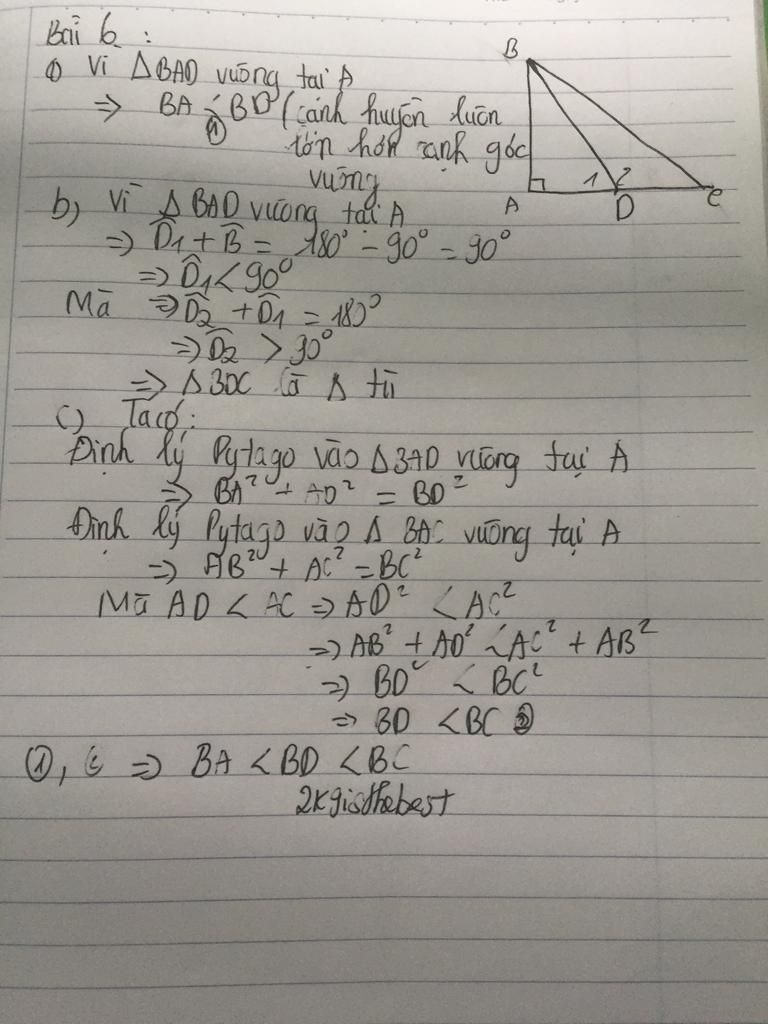 Bài 6 :
a) Vì ΔBAD vuông tại A
⇒ BA < BD (cạnh huyền luôn
①
lớn hơn cạnh góc
vuông
B
A
1 2
D
C
b) Vì ΔBAD vuông tại A
⇒ D̂1 + B̂ = 180° - 90° = 90°
⇒ D̂1 < 90°
Mà ⇒ D̂2 + D̂1 = 180°
⇒ D̂2 > 90°
⇒ ΔBDC là Δ tù
c) Ta có :
Định lý Pytago vào ΔBAD vuông tại A
⇒ BA² + AD² = BD²
Định lý Pytago vào Δ BAC vuông tại A
⇒ AB² + AC² = BC²
Mà AD < AC ⇒ AD² < AC²
⇒ AB² + AD² < AC² + AB²
⇒ BD² < BC²
⇒ BD < BC ②
①, ⇒ BA < BD < BC
2kgisthebest